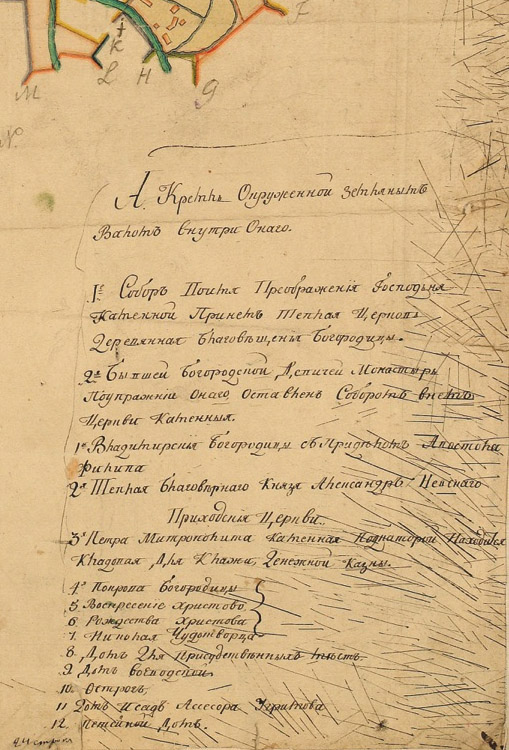 F
K
L
H
M
N.
А. Крепь Окруженной земляныть
Валомъ внутри Онаго.
1е Соборъ Посля Преображенiя Господня
каменной Принемъ Теплая Церковь
Деревянная Благовѣщенiя Богородицы.
2е Бывшей Богородской Девичей Монастырь
Поупражнiи Онаго, Оставленъ Соборомъ внемъ
Церкви Каменныя.
1е Владимирскiя Богородицы съ Придѣломъ Апостола
Филипа
2я Теплая Благовѣрнаго Князя Александръ Невскаго
Приходскiя Церкви.
3я Петра Митрополита каменная Подкаторой Находится
Кладовая Для Клажи, Денежной Казны.
4я Покрова Богородицы
5 Воскресенiе Христово
6 Рождества Христова
7. Николая Чудотворца
8. Домъ Для Присудственныхъ мѣстъ.
9. Домъ воеводской
10. Острогъ,
11 Домъ Асесора
12. Питейной Домъ.